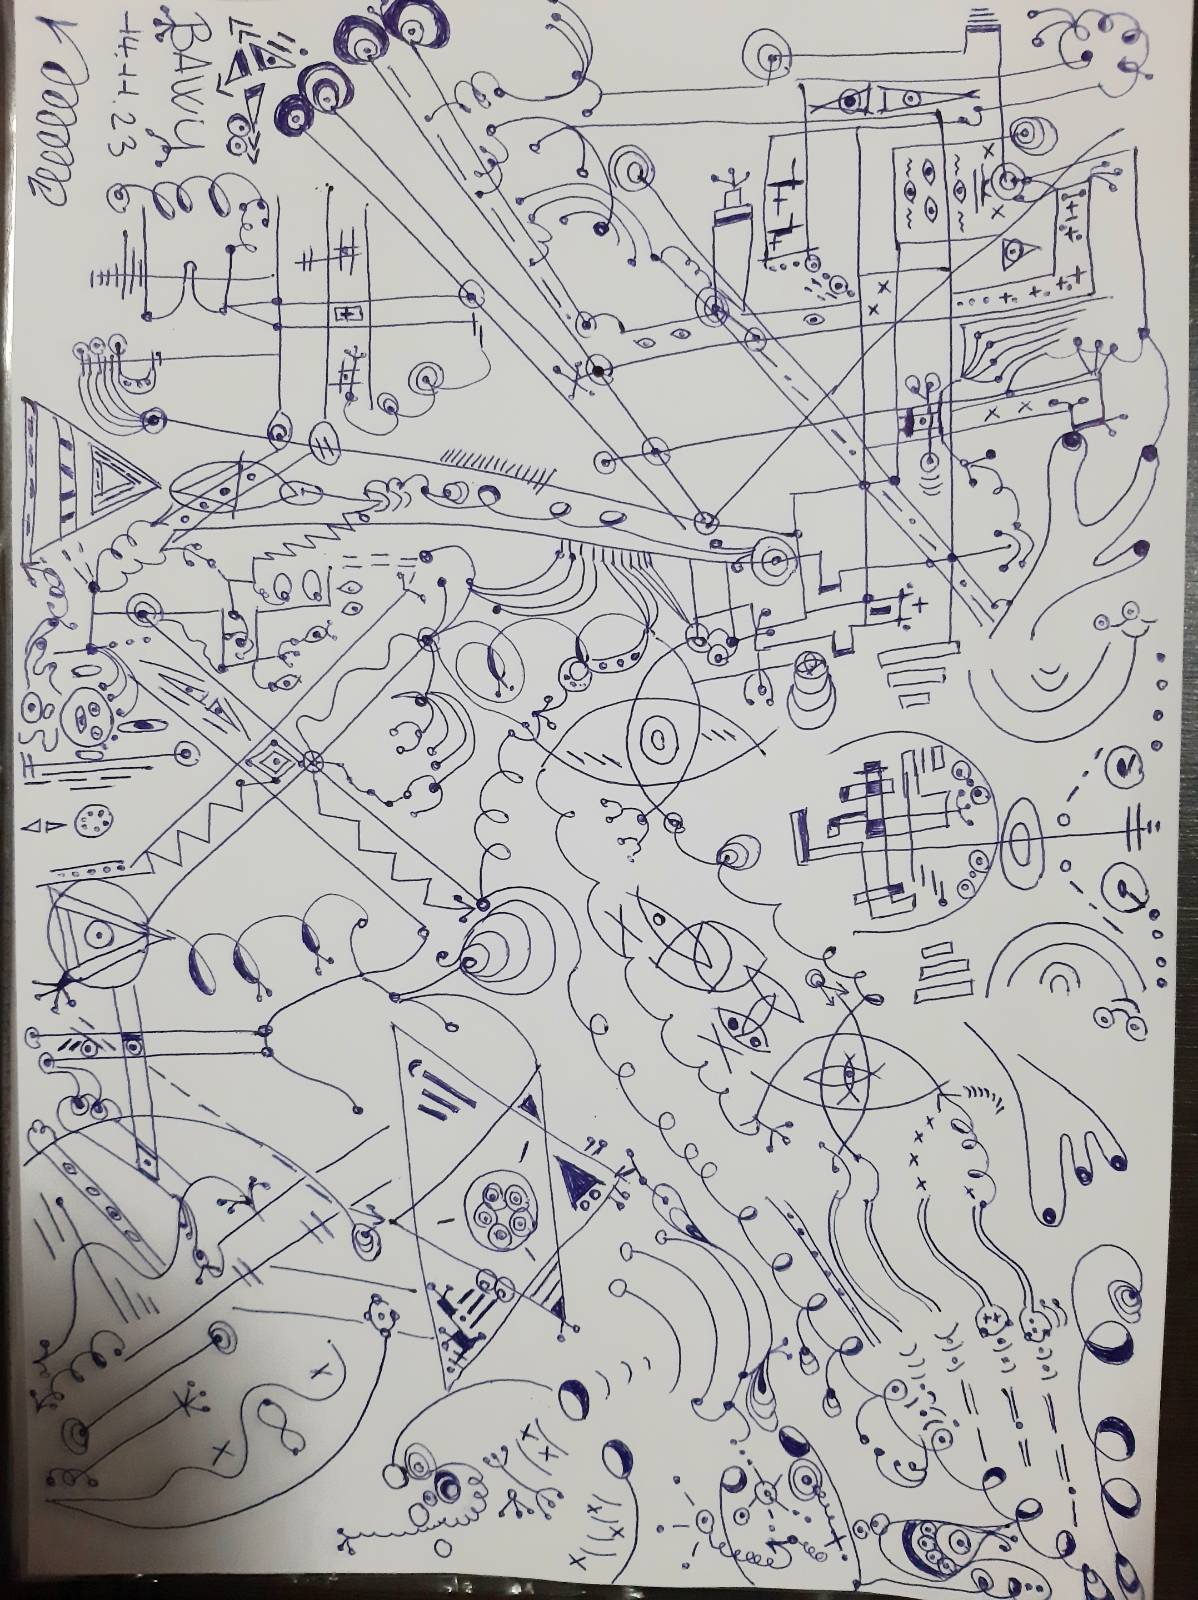 BAWU
14.11.23